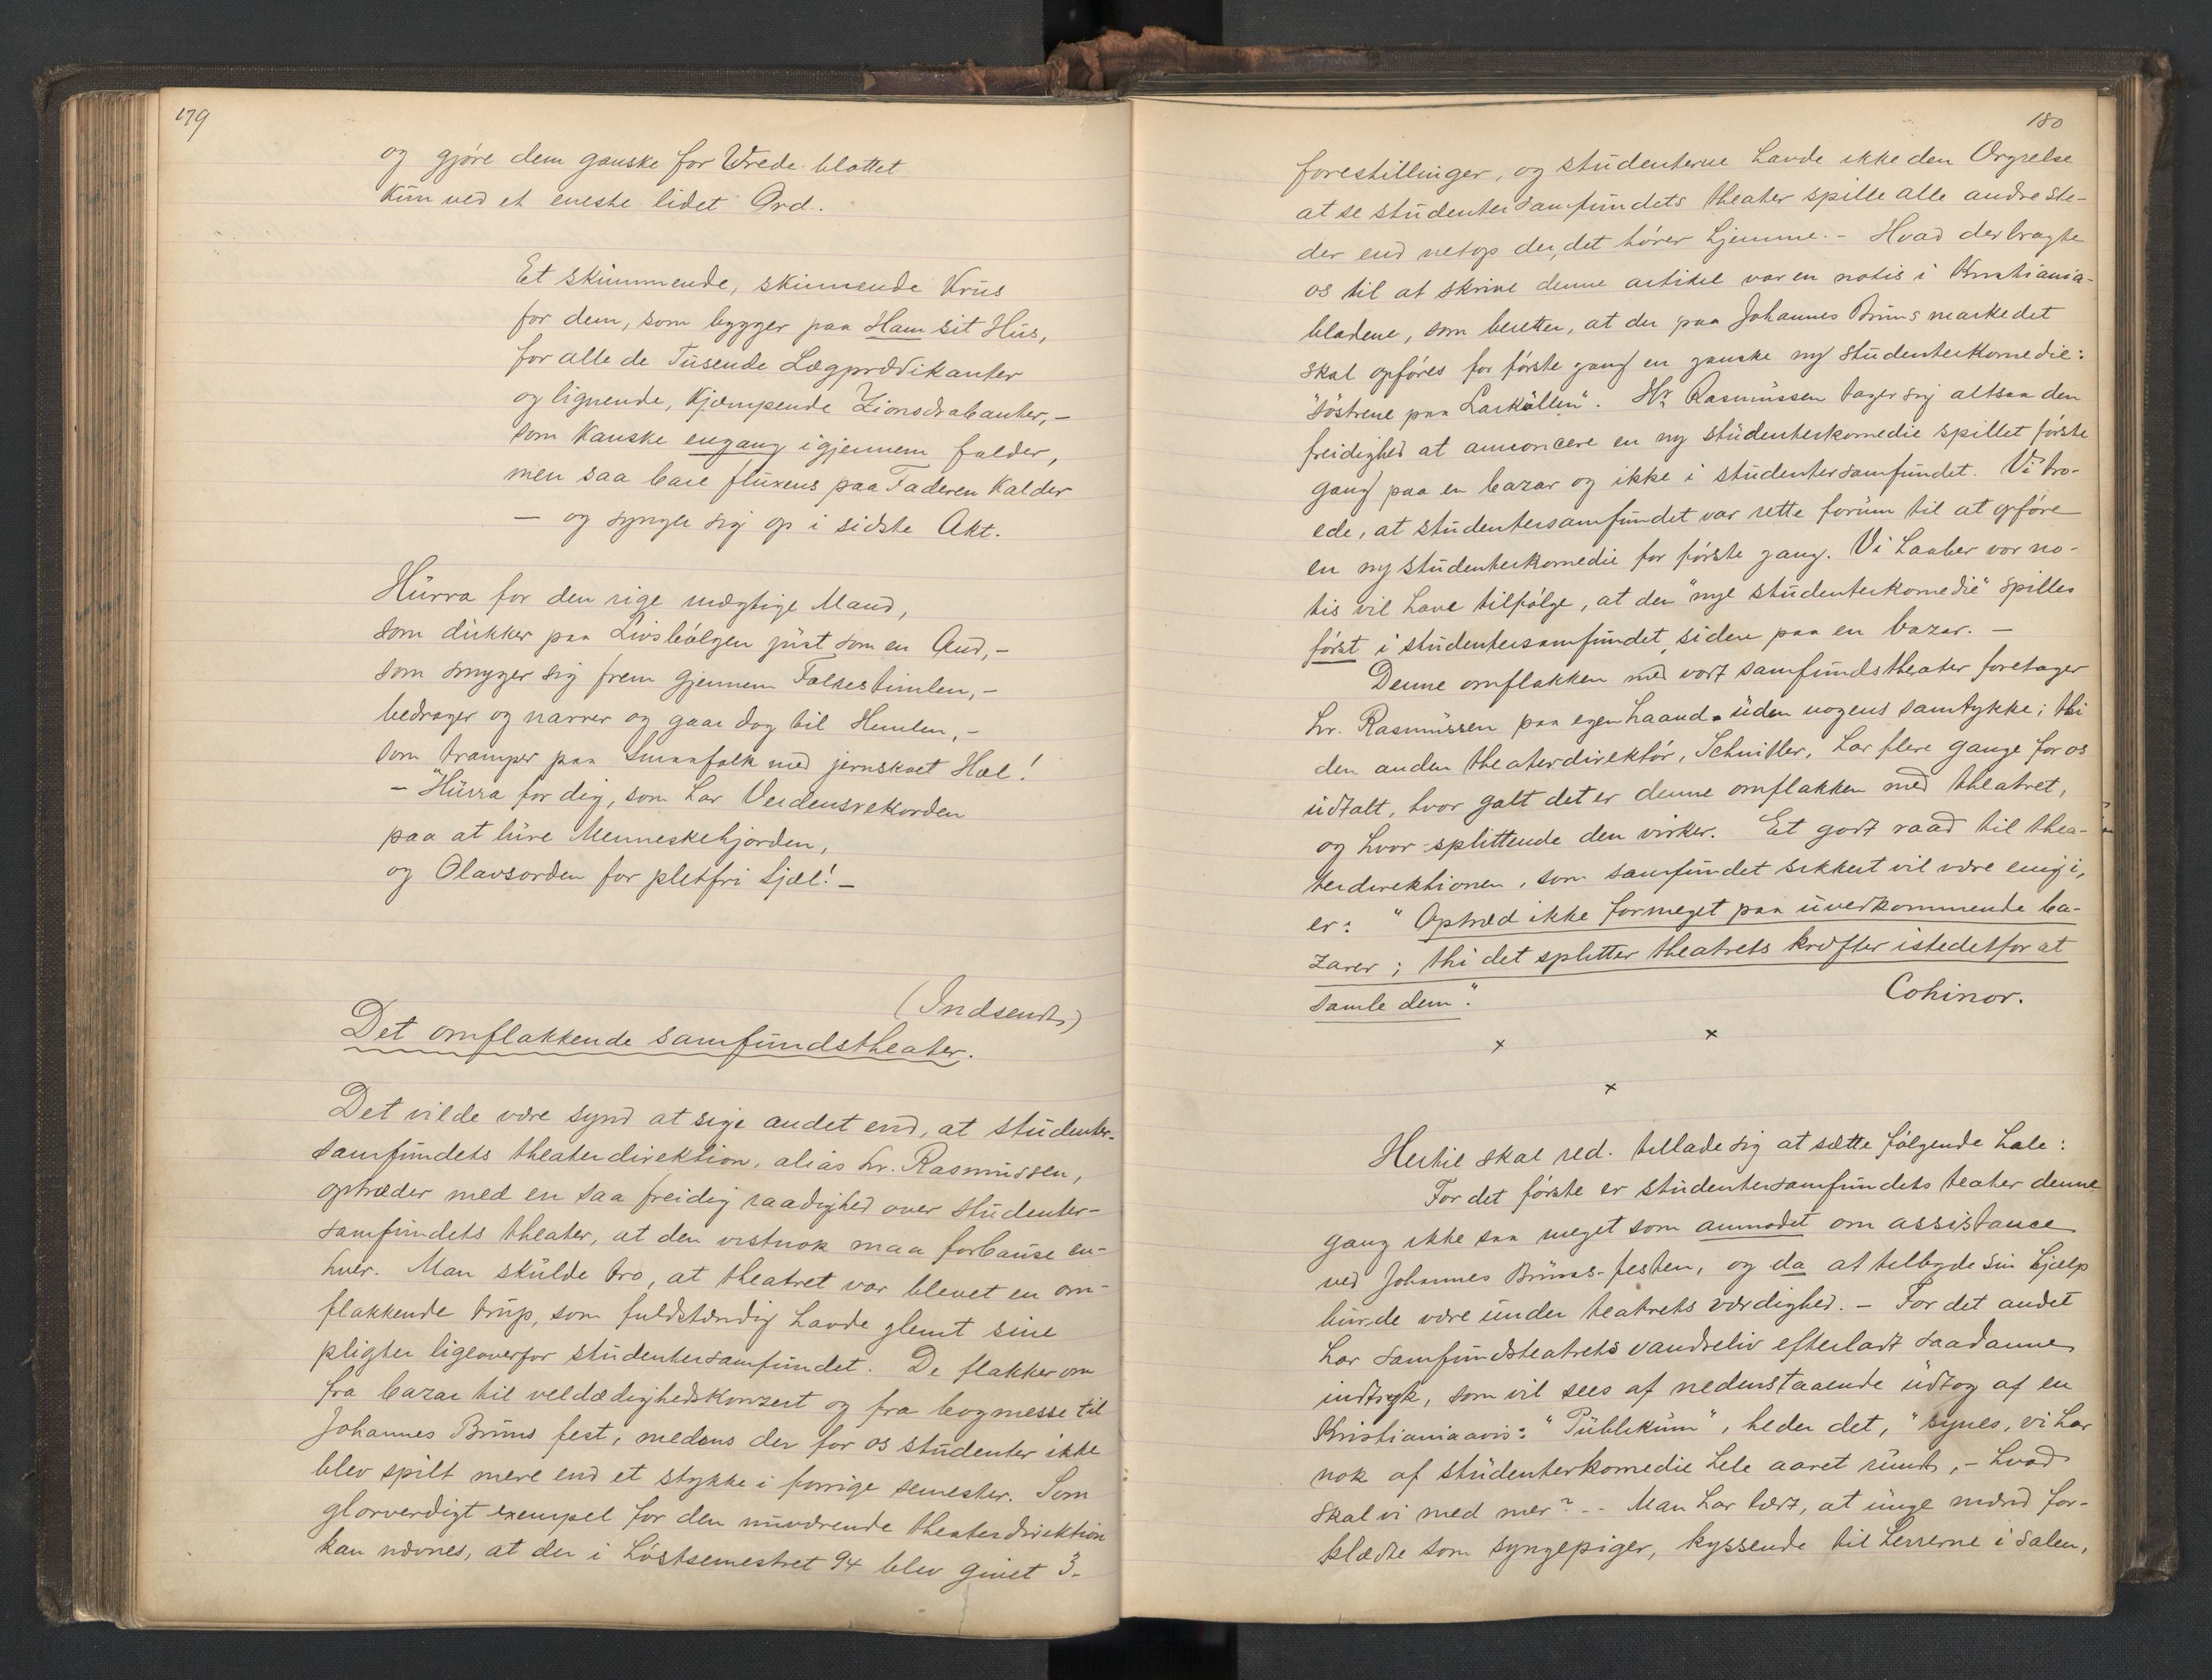 179
og gjøre dem ganske for Vrede blottet
kun ved et eneste lidet Ord.
Et skummende, skinnende Krus
for dem, som bygger paa Ham sit Hus,
for alle de Tusende Lægprædikanter
og lignende, kjæmpende Zionsdrabanter, –
som kanske engang igjennem falder,
men saa bare fluxens paa Faderen kalder
– og synger sig op i sidste Akt.
Hurra for den rige mægtige Mand,
som dukker paa Livsbølgen just som en And, –
som smyger sig frem gjennem Folkestimlen, –
bedrager og narrer og gaar dog til Himlen, –
som tramper paa Smaafolk med jernskoet Hæl!
– "Hurra for dig, som har Verdensrekorden
paa at lure Menneskehjorden,
og Olavsorden for pletfri Sjæl! –
(Indsendt)
Det omflakkende samfundstheater.
Det vilde være synd at sige andet end, at studenter-
samfundets theaterdirektion, alias hr. Rasmussen,
optræder med en saa freidig raadighed over studenter-
samfundets theater, at den vistnok maa forbause en-
hver. Man skulde tro, at theatret var blevet en om-
flakkende trup, som fuldstændig havde glemt sine
pligter ligeoverfor studentersamfundet. De flakker om
fra bazar til veldædighedskonzert og fra bogmesse til
Johannes Bruns fest, medens der for os studenter ikke
blev spilt mere end et stykke i forrige semester. Som
glorverdigt exempel for den nuværende theaterdirektion
kan nævnes, at der i høstsemestret 94 blev givet 3.
180
forestillinger, og studenterne havde ikke den Ærgrelse
at se studentersamfundets theater spille alle andre ste-
der end netop der, det hører hjemme. – Hvad der bragte
os til at skrive denne artikel var en notis i Kristiania-
bladene, som beretter, at der paa Johannes Bruns markedet
skal opføres for første gang en ganske ny studenterkomedie:
"Søstrene paa Larkøllen". Hr. Rasmussen tager sig altsaa den
freidighed at annoncere en ny studenterkomedie spillet første
gang paa en bazar og ikke i studentersamfundet. Vi tro-
ede, at studentersamfundet var rette forum til at opføre
en ny studenterkomedie for første gang. Vi haaber vor no-
tis vil have tilfølge, at den "nye studenterkomedie" spilles
først i studentersamfundet, siden paa en bazar. –
Denne omflakken med vort samfundstheater foretager
hr. Rasmussen paa egen haand uden nogens samtykke; thi
den anden theaterdirektør, Schnitler, har flere gange for os
udtalt, hvor galt det er denne omflakken med theatret,
og hvor splittende den virker. Et godt raad til thea-
terdirektionen, som samfundet sikkert vil være enig i,
er: "Optræd ikke formeget paa uvedkommende ba-
zarer; thi det splitter theatrets kræfter istedetfor at
samle dem".
Cohinor.
x x
x
Hertil skal red. tillade sig at sætte følgende hale:
For det første er studentersamfundets teater denne
gang ikke saa meget som anmodet om assistance
ved Johannes Bruns-festen, og da at tilbyde sin hjælp
burde være under teatrets værdighed. – For det andet
har samfundsteatrets vandreliv efterladt saadanne
indtryk, som vil sees af nedenstaaende udtog af en
Kristianiaavis: "Publikum", heder det, "synes, vi har
nok af studenterkomedie hele aaret rundt, – hvad
skal vi med mer? – Man har lært, at unge mænd for-
klædte som syngepiger, kyssende til herrerne i salen,